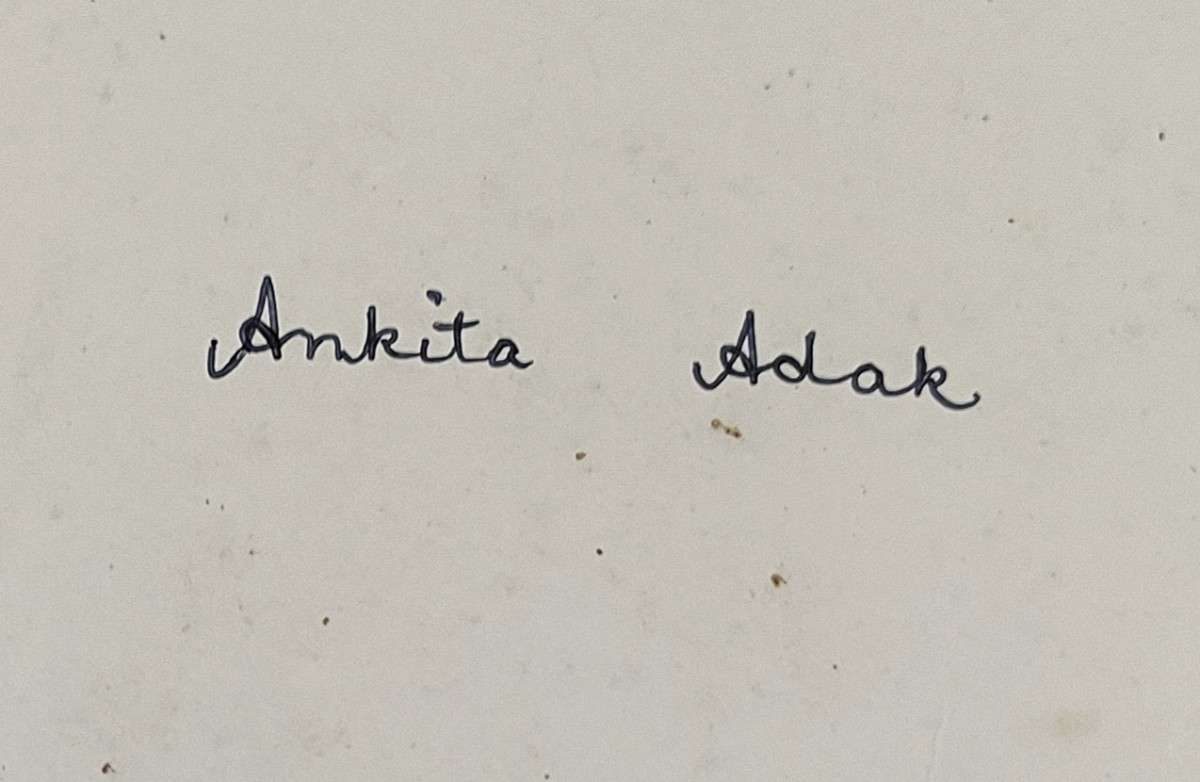 Ankita Adak